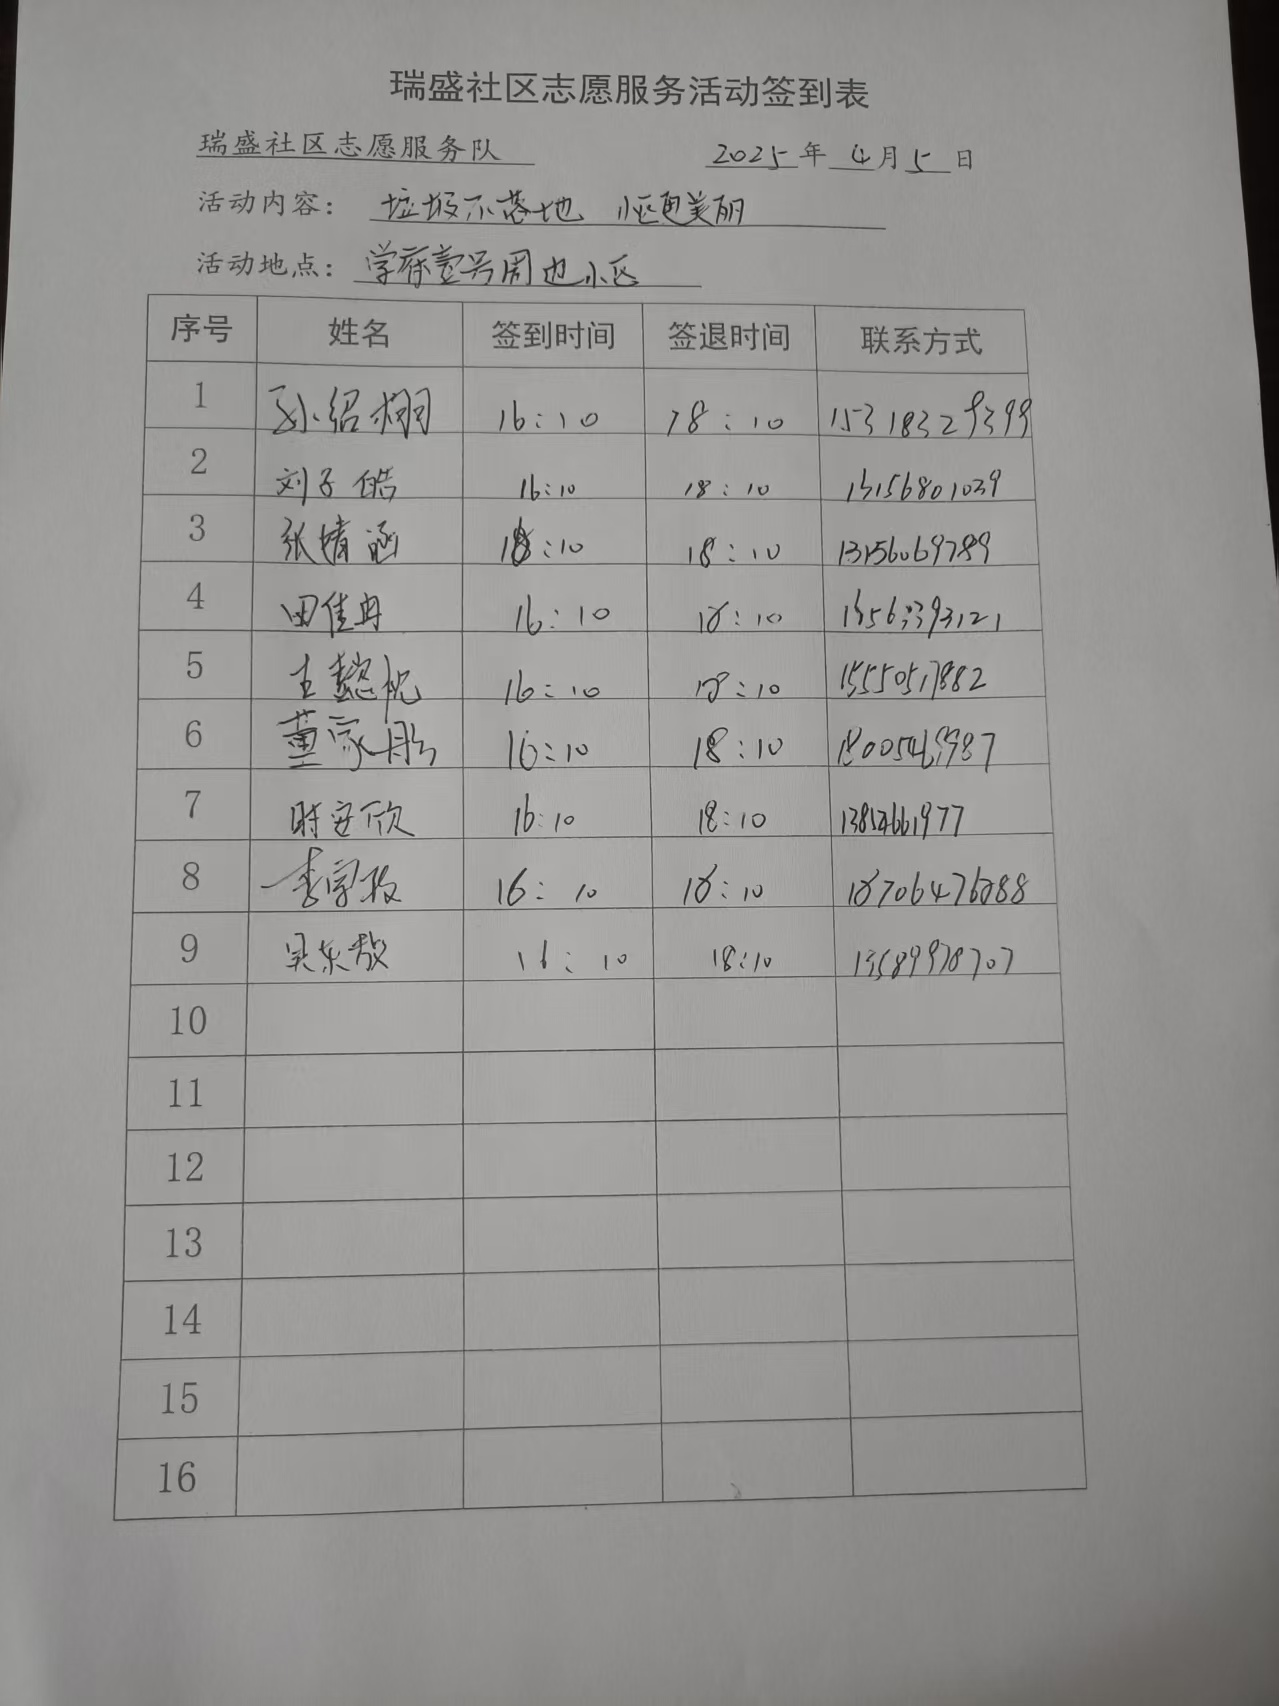 瑞盛社区志愿服务活动签到表
瑞盛社区志愿服务队 2025年4月5日
活动内容: 垃圾不落地 小区更美丽
活动地点: 学府壹号周边小区
序号 姓名 签到时间 签退时间 联系方式
1 孙绍栩 16:10 18:10 15318329399
2 刘子皓 16:10 18:10 13156801039
3 张婧涵 16:10 18:10 13156069789
4 田佳冉 16:10 18:10
5 王懿忱 16:10 18:10 15550517882
6 董家彤 16:10 18:10
7 时安欣 16:10 18:10
8 李宗政 16:10 18:10 18706476088
9 吴东骏 16:10 18:10 13589978707
10
11
12
13
14
15
16